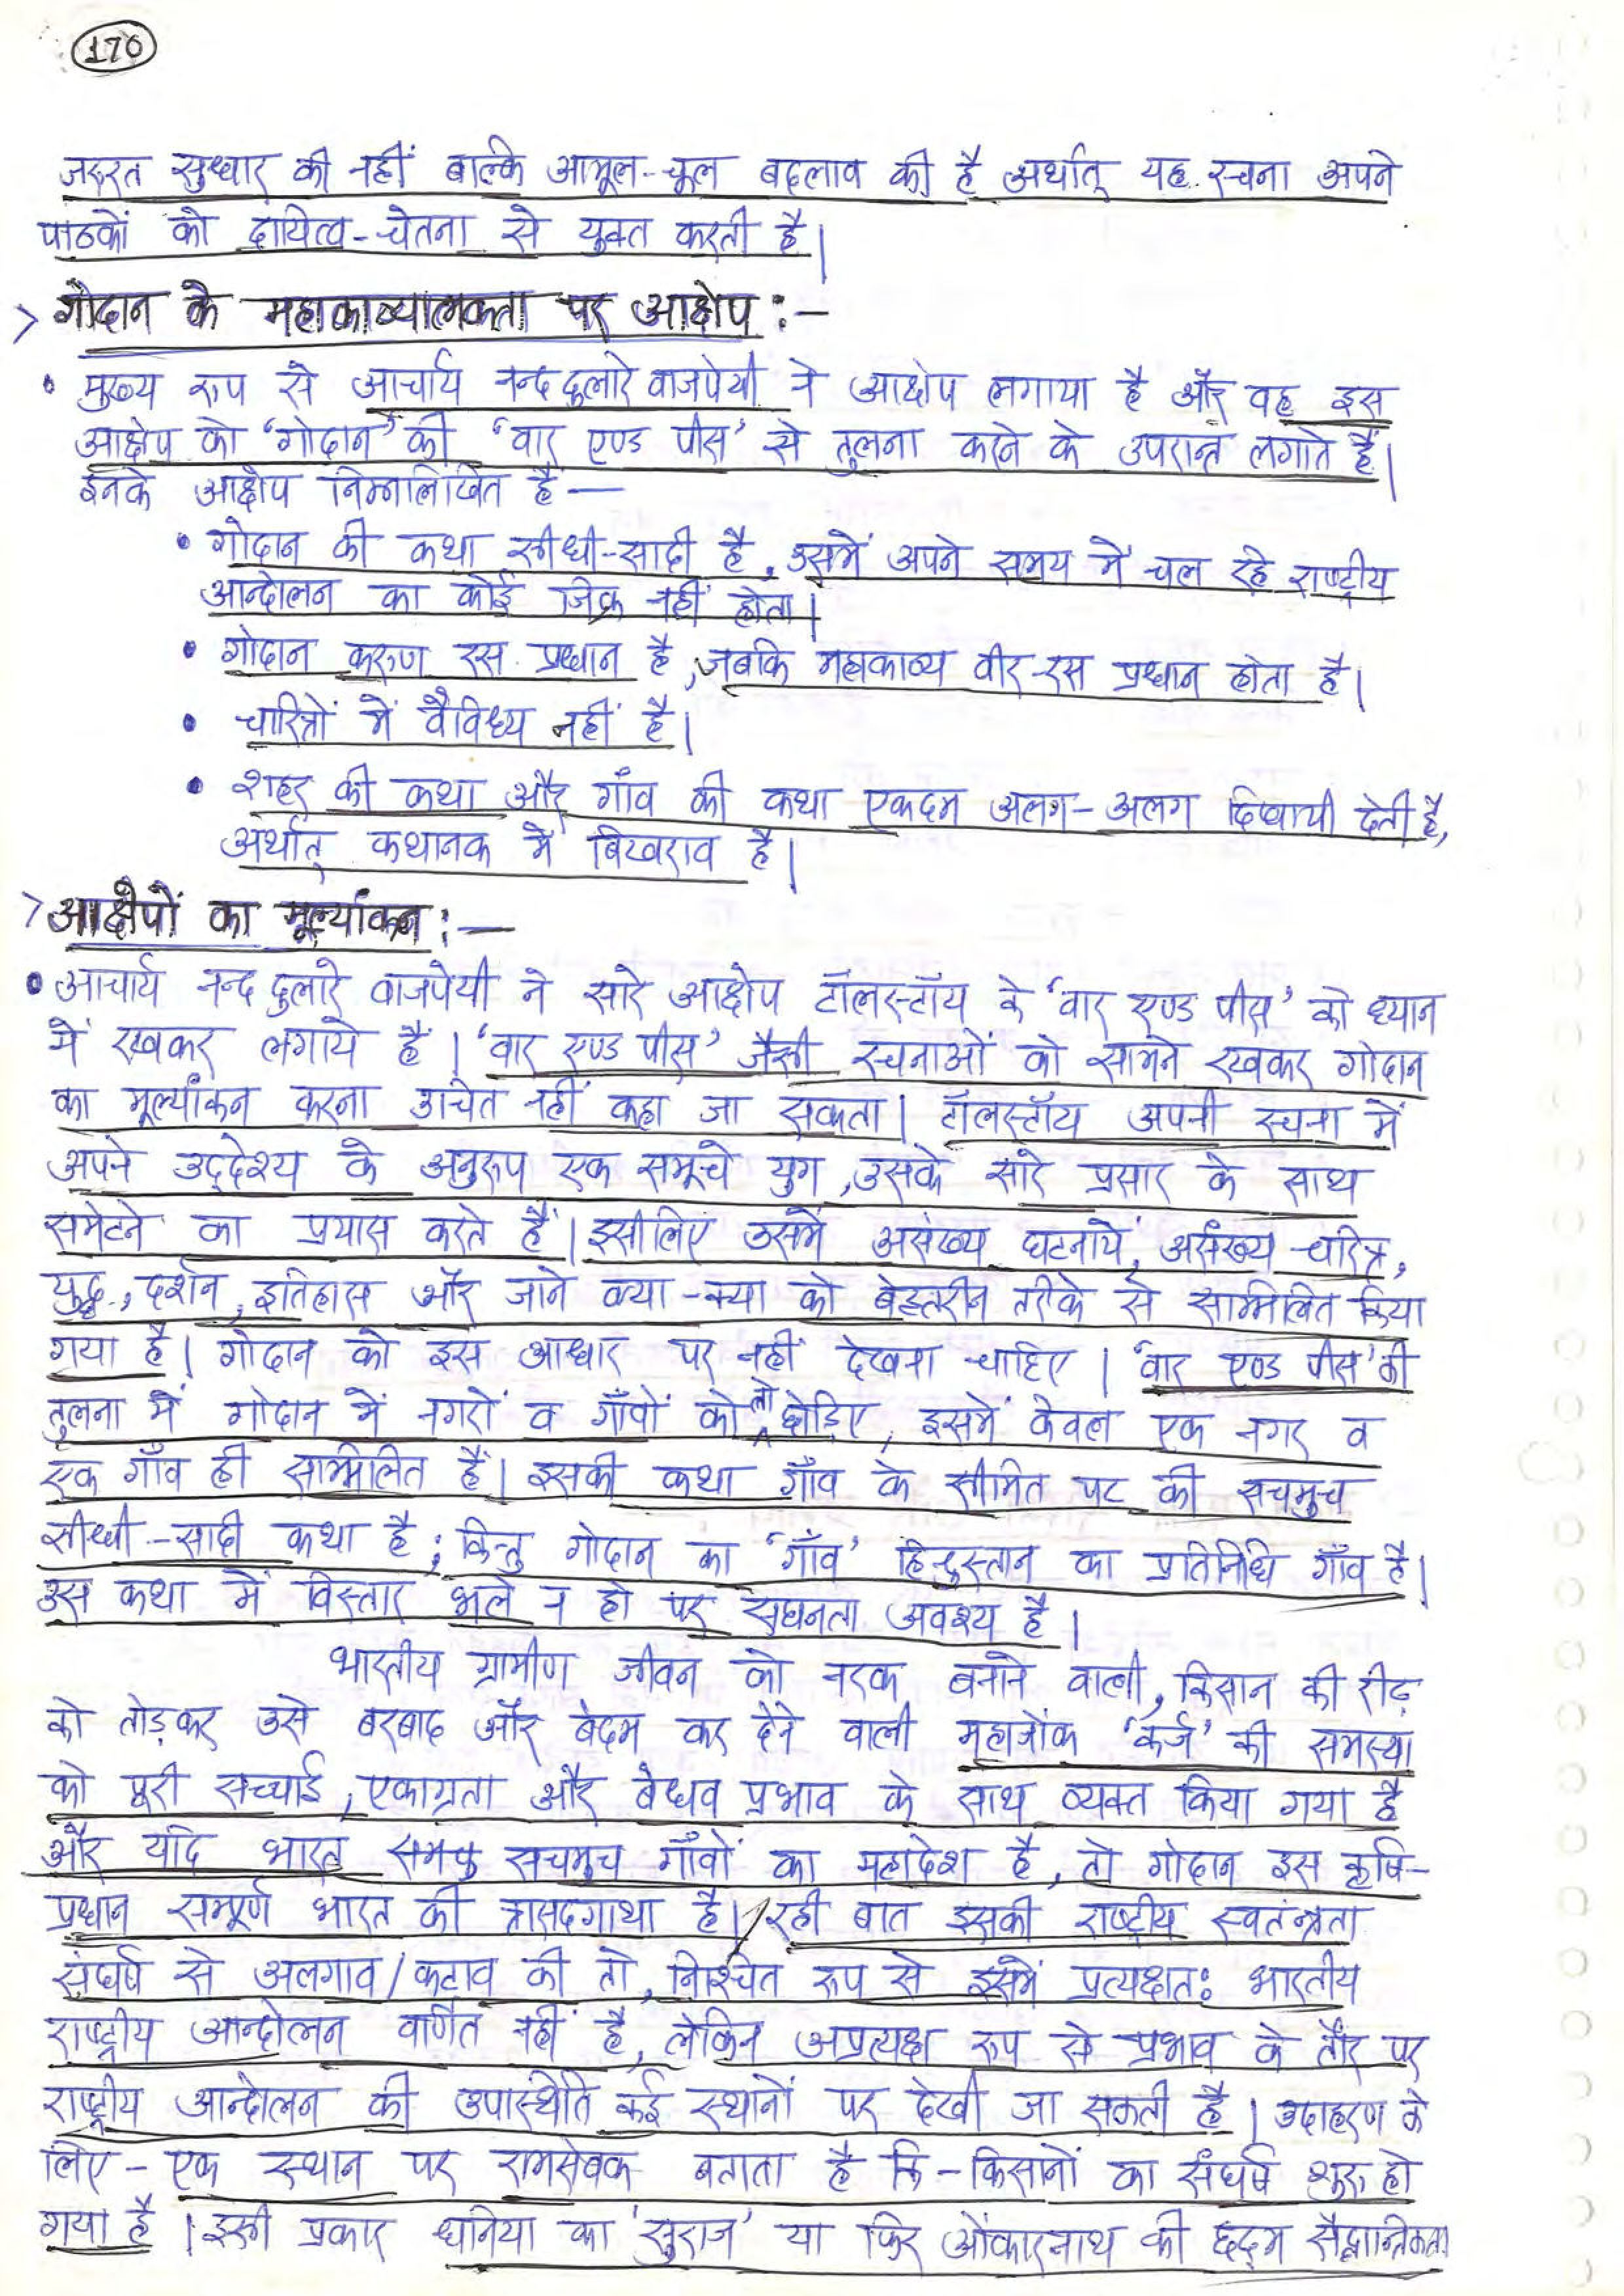 170
जरूरत सुधार की नहीं बल्कि आमूल-चूल बदलाव की है अर्थात् यह रचना अपने
पाठकों को दायित्व-चेतना से युक्त करती है।
> गोदान के महाकाव्यात्मकता पर आक्षेप :-
• मुख्य रूप से आचार्य नन्द दुलारे वाजपेयी ने आक्षेप लगाया है और वह इस
आक्षेप को 'गोदान' की 'वार एण्ड पीस' से तुलना करने के उपरान्त लगाते हैं।
इनके आक्षेप निम्नलिखित हैं —
• गोदान की कथा सीधी-सादी है, उसमें अपने समय में चल रहे राष्ट्रीय
आन्दोलन का कोई जिक्र नहीं होता।
• गोदान करुण रस प्रधान है, जबकि महाकाव्य वीर-रस प्रधान होता है।
• चरित्रों में वैविध्य नहीं है।
• शहर की कथा और गाँव की कथा एकदम अलग-अलग दिखायी देती है,
अर्थात् कथानक में बिखराव है।
> आक्षेपों का मूल्यांकन :—
• आचार्य नन्द दुलारे वाजपेयी ने सारे आक्षेप टॉलस्टॉय के 'वार एण्ड पीस' को ध्यान
में रखकर लगाये हैं। 'वार एण्ड पीस' जैसी रचनाओं को सामने रखकर गोदान
का मूल्यांकन करना उचित नहीं कहा जा सकता। टॉलस्टॉय अपनी रचना में
अपने उद्देश्य के अनुरूप एक समूचे युग, उसके सारे प्रसार के साथ
समेटने का प्रयास करते हैं। इसीलिए उसमें असंख्य घटनायें, असंख्य चरित्र,
युद्ध, दर्शन, इतिहास और जाने क्या-क्या को बेहतरीन तरीके से सम्मिलित किया
गया है। गोदान को इस आधार पर नहीं देखना चाहिए। 'वार एण्ड पीस' की
तुलना में गोदान में नगरों व गाँवों को तो छोड़िए, इसमें केवल एक नगर व
एक गाँव ही सम्मिलित हैं। इसकी कथा गाँव के सीमित पट की सचमुच
सीधी-सादी कथा है; किन्तु गोदान का 'गाँव' हिन्दुस्तान का प्रतिनिधि गाँव है।
उस कथा में विस्तार भले न हो पर सघनता अवश्य है।
भारतीय ग्रामीण जीवन को नरक बनाने वाली, किसान की रीढ़
को तोड़कर उसे बरबाद और बेदम कर देने वाली महाजोंक 'कर्ज' की समस्या
को पूरी सच्चाई, एकाग्रता और बेधव प्रभाव के साथ व्यक्त किया गया है
और यदि भारत सचमुच गाँवों का महादेश है, तो गोदान इस कृषि-
प्रधान सम्पूर्ण भारत की त्रासदगाथा है। रही बात इसकी राष्ट्रीय स्वतंन्त्रता
संघर्ष से अलगाव/कटाव की तो, निश्चित रूप से इसमें प्रत्यक्षतः भारतीय
राष्ट्रीय आन्दोलन वर्णित नहीं है, लेकिन अप्रत्यक्ष रूप से प्रभाव के तौर पर
राष्ट्रीय आन्दोलन की उपस्थिति कई स्थानों पर देखी जा सकती है। उदाहरण के
लिए - एक स्थान पर रामसेवक बताता है कि - किसानों का संघर्ष शुरू हो
गया है। इसी प्रकार धनिया का 'सुराज' या फिर ओंकारनाथ की छद्म सैद्धान्तिकता